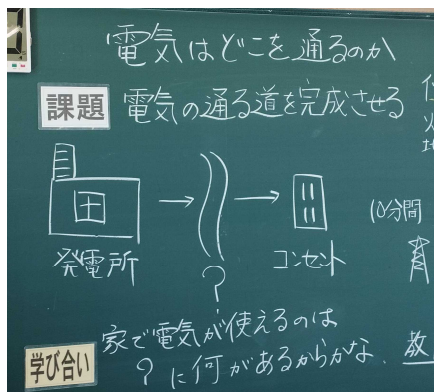 電気はどこを通るのか
課題 電気の通る道を完成させる
発電所
?
コンセント
10分間
学び合い
家で電気が使えるのは
?に何があるからかな。
教